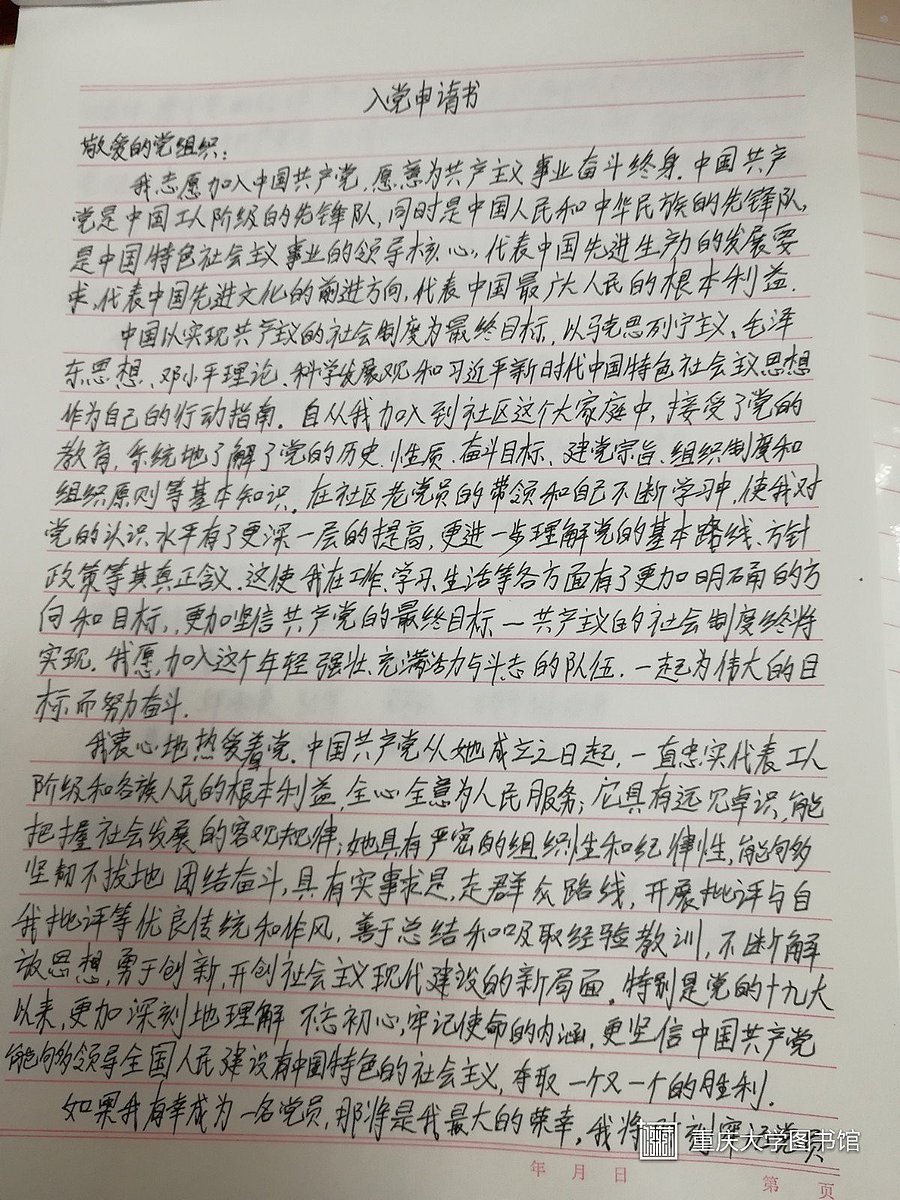 入党申请书
敬爱的党组织:
我志愿加入中国共产党,愿意为共产主义事业奋斗终身.中国共产
党是中国工人阶级的先锋队,同时是中国人民和中华民族的先锋队,
是中国特色社会主义事业的领导核心,代表中国先进生产力的发展要
求,代表中国先进文化的前进方向,代表中国最广大人民的根本利益.
中国以实现共产主义的社会制度为最终目标,以马克思列宁主义、毛泽
东思想、邓小平理论、科学发展观和习近平新时代中国特色社会主义思想
作为自己的行动指南.自从我加入到社区这个大家庭中,接受了党的
教育,系统地了解了党的历史、性质、奋斗目标、建党宗旨、组织制度和
组织原则等基本知识.在社区老党员的带领和自己不断学习中,使我对
党的认识水平有了更深一层的提高,更进一步理解党的基本路线、方针
政策等其真正含义.这使我在工作、学习、生活等各方面有了更加明确的方
向和目标,更加坚信共产党的最终目标—共产主义的社会制度终将
实现.我愿加入这个年轻强壮、充满活力与斗志的队伍.一起为伟大的目
标而努力奋斗.
我衷心地热爱着党.中国共产党从她成立之日起,一直忠实代表工人
阶级和各族人民的根本利益,全心全意为人民服务;它具有远见卓识,能
把握社会发展的客观规律;她具有严密的组织性和纪律性,能够
坚韧不拔地团结奋斗,具有实事求是,走群众路线,开展批评与自
我批评等优良传统和作风,善于总结和吸取经验教训,不断解
放思想,勇于创新,开创社会主义现代建设的新局面.特别是党的十九大
以来,更加深刻地理解不忘初心,牢记使命的内涵,更坚信中国共产党
能够领导全国人民建设有中国特色的社会主义,夺取一个又一个的胜利.
如果我有幸成为一名党员,那将是我最大的荣幸,我将时刻牢记党员
重庆大学图书馆
年 月 日
第 页